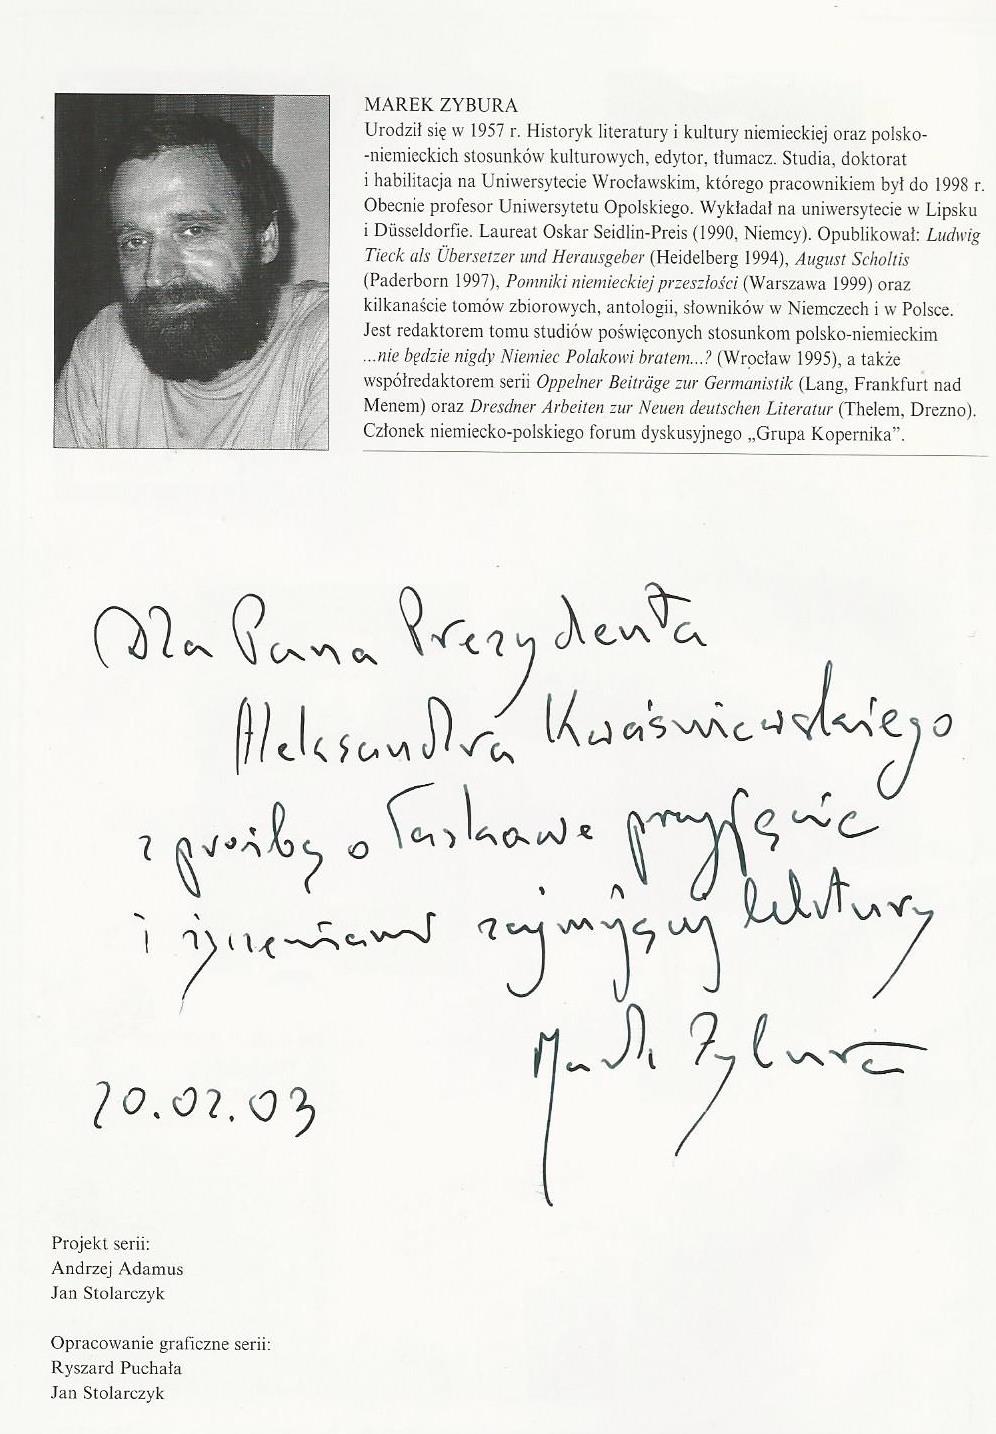 MAREK ZYBURA
Urodził się w 1957 r. Historyk literatury i kultury niemieckiej oraz polsko-
-niemieckich stosunków kulturowych, edytor, tłumacz. Studia, doktorat
i habilitacja na Uniwersytecie Wrocławskim, którego pracownikiem był do 1998 r.
Obecnie profesor Uniwersytetu Opolskiego. Wykładał na uniwersytecie w Lipsku
i Düsseldorfie. Laureat Oskar Seidlin-Preis (1990, Niemcy). Opublikował: Ludwig
Tieck als Übersetzer und Herausgeber (Heidelberg 1994), August Scholtis
(Paderborn 1997), Pomniki niemieckiej przeszłości (Warszawa 1999) oraz
kilkanaście tomów zbiorowych, antologii, słowników w Niemczech i w Polsce.
Jest redaktorem tomu studiów poświęconych stosunkom polsko-niemieckim
...nie będzie nigdy Niemiec Polakowi bratem...? (Wrocław 1995), a także
współredaktorem serii Oppelner Beiträge zur Germanistik (Lang, Frankfurt nad
Menem) oraz Dresdner Arbeiten zur Neuen deutschen Literatur (Thelem, Drezno).
Członek niemiecko-polskiego forum dyskusyjnego „Grupa Kopernika”.
Dla Pana Prezydenta
Aleksandra Kwaśniewskiego
z prośbą o łaskawe przyjęcie
i życzeniami zajmującej lektury
Marek Zybura
20.02.03
Projekt serii:
Andrzej Adamus
Jan Stolarczyk
Opracowanie graficzne serii:
Ryszard Puchała
Jan Stolarczyk